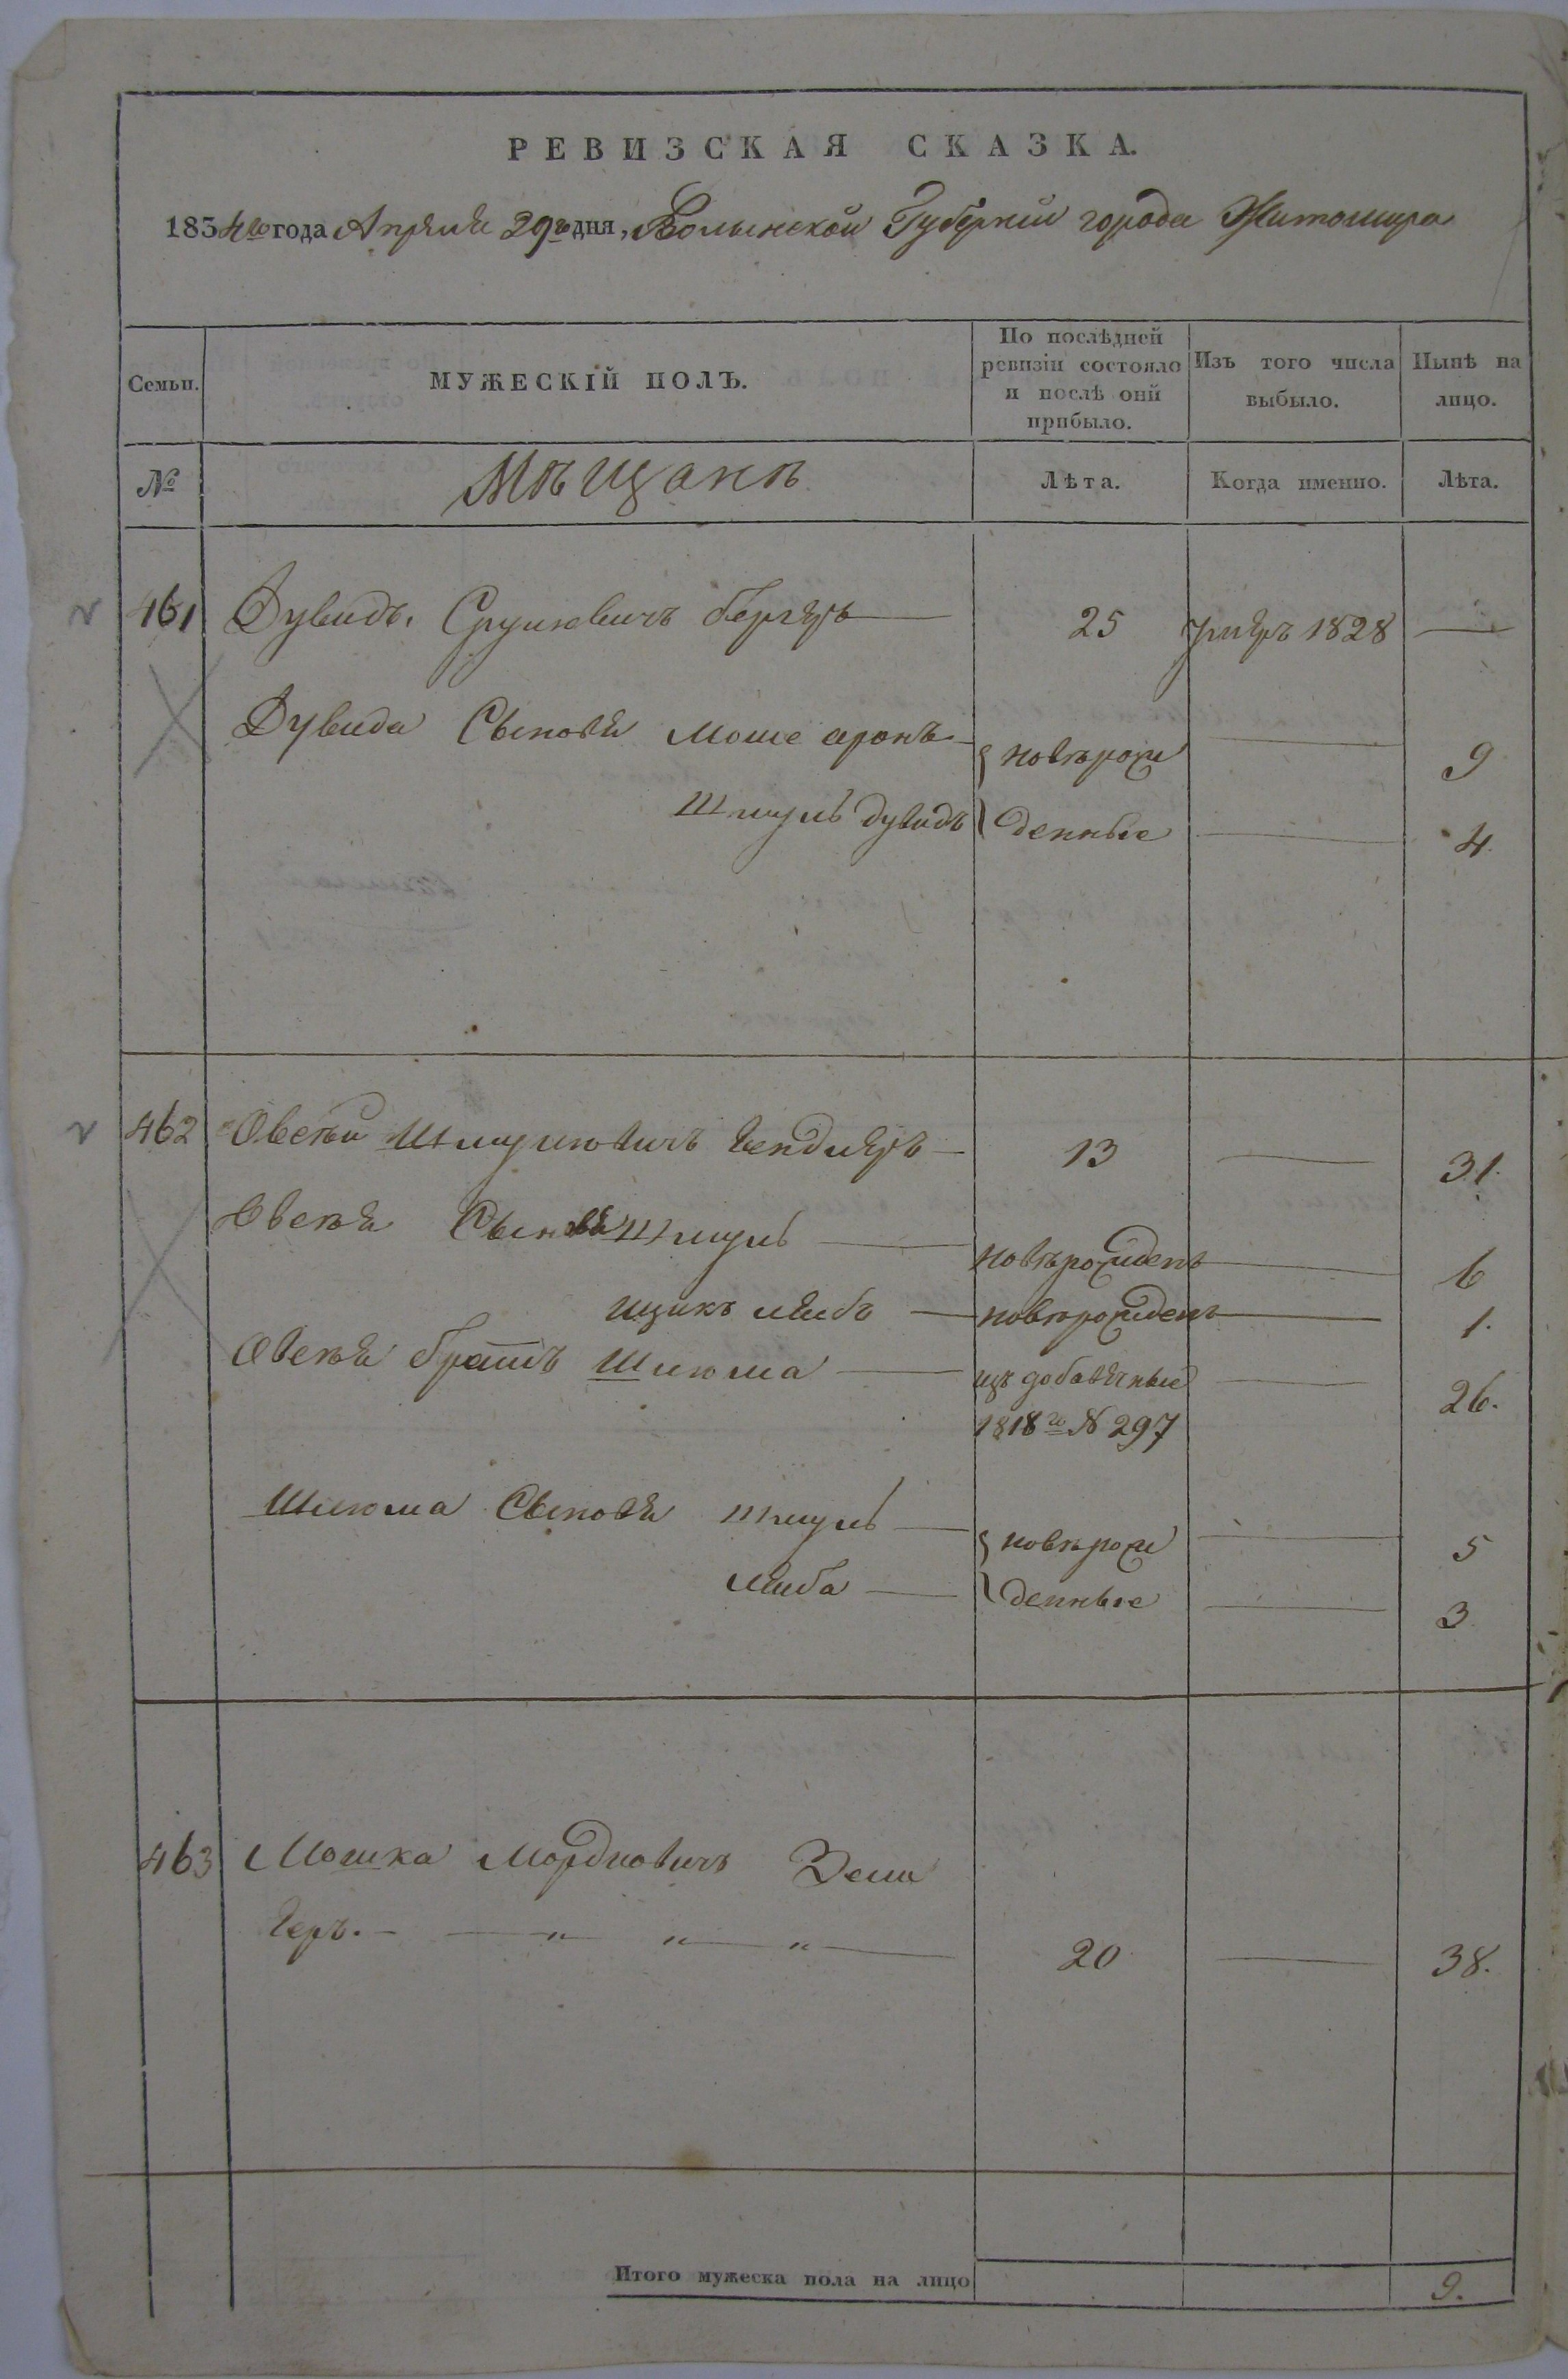 РЕВИЗСКАЯ СКАЗКА.
1834го года Апреля 29го дня, Волынской Губернии города Житомира
Семьи. МУЖЕСКІЙ ПОЛЪ. По послѣдней ревизіи состояло и послѣ оній прибыло. Изъ того числа выбыло. Нынѣ на лицо.
№ Мѣщанѣ Лѣта. Когда именно. Лѣта.
461 Дувидъ Срулювичъ 25 умеръ 1828 —
Дувида Сыновя Моше аронъ новърож 9
Шмуль дувидъ денные 4.
462 Овсей Шмулювичъ 13 — 31.
Овсея Сыновя Шмуль — новърожденъ 6
Ицикъ лейбъ — новърожденъ 1.
Овсея братъ Шлюма — изъ добавочные — 26.
1818го № 297
Шлюма Сыновя Шмуль — новърож — 5
Лейба — денные — 3
463 Мошка Мордковичъ
20 — 38.
Итого мужеска пола на лицо 9.